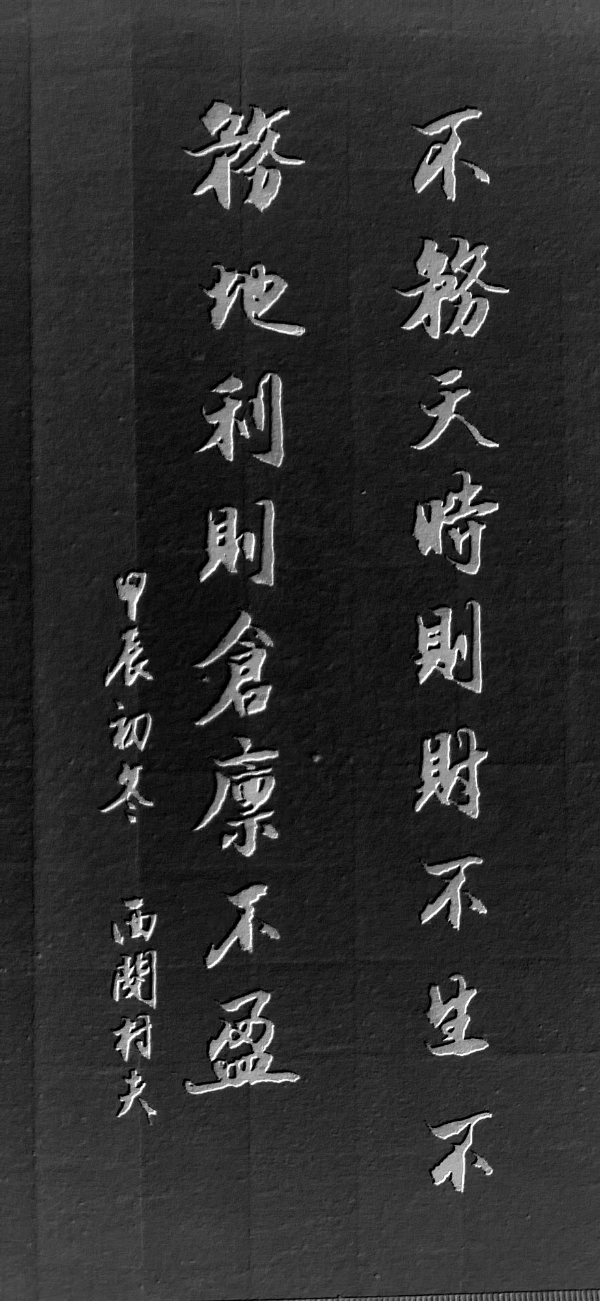 不務天時則財不生不
務地利則倉廩不盈
甲辰初冬 西関村夫